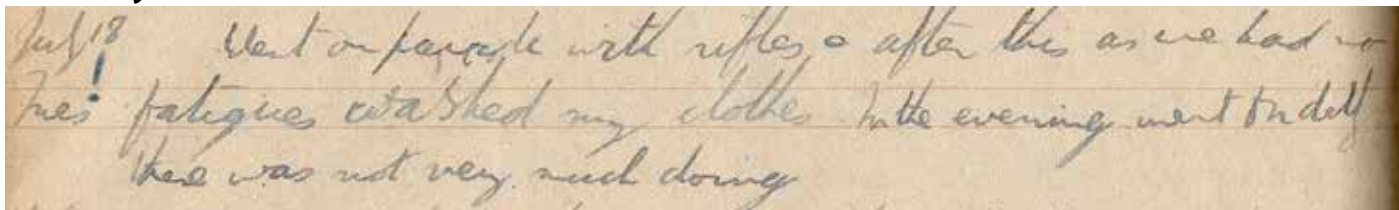 July 18 Went on parade with rifles & after this as we had no
Tues! fatigues washed my clothes. In the evening went on duty
there was not very much doing